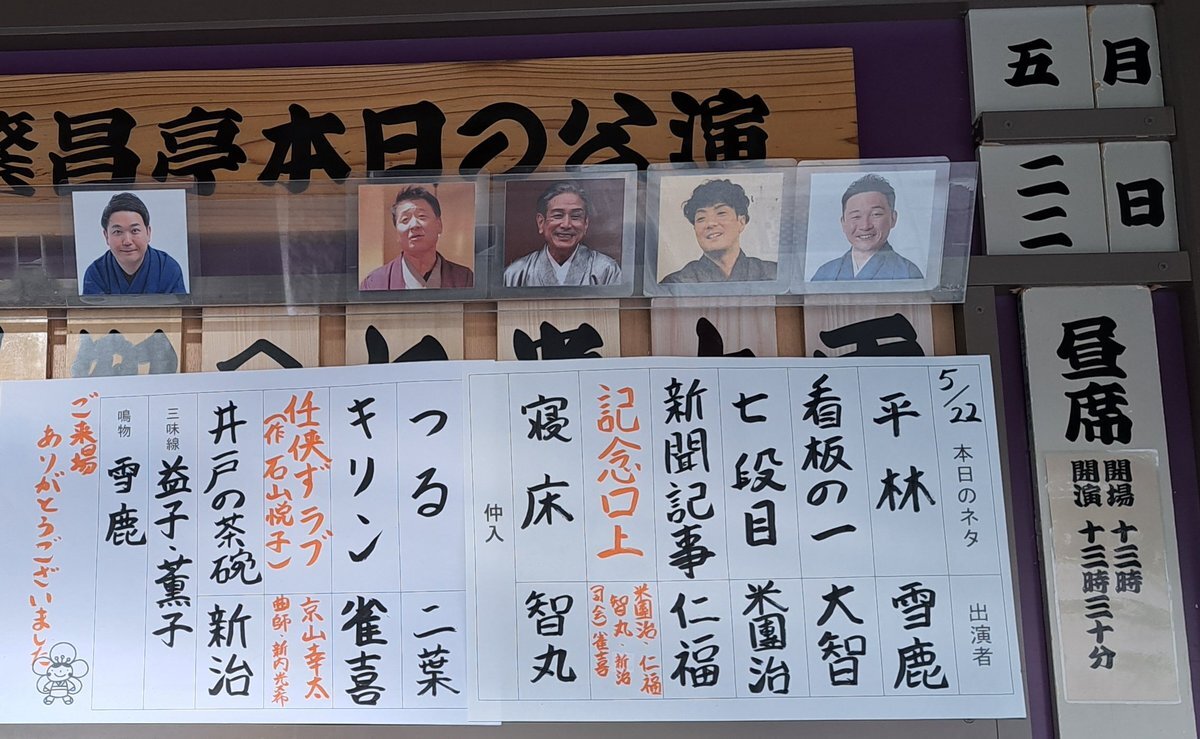 繁昌亭本日の公演
五月
二二日
昼席
開場 十三時
開演 十三時三十分
5/22 本日のネタ 出演者
平林 雪鹿
看板の一 大智
七段目 米團治
新聞記事 仁福
記念口上
米團治・仁福
智丸・新治
司会 雀喜
寝床 智丸
仲入
つる 二葉
キリン 雀喜
任侠ずラブ 京山幸太
(作 石山悦子) 曲師・新内光希
井戸の茶碗 新治
三味線 益子・薫子
鳴物 雪鹿
ご来場
ありがとうございました